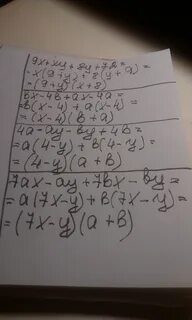 9x+xy+8y+72=
=x(9+y)+8(y+9)=
=(9+y)(x+8)
bx-4b+ax-4a=
=b(x-4)+a(x-4)=
=(x-4)(b+a)
4a-ay-by+4b=
=a(4-y)+b(4-y)=
=(4-y)(a+b)
7ax-ay+7bx-by=
=a(7x-y)+b(7x-y)=
=(7x-y)(a+b)